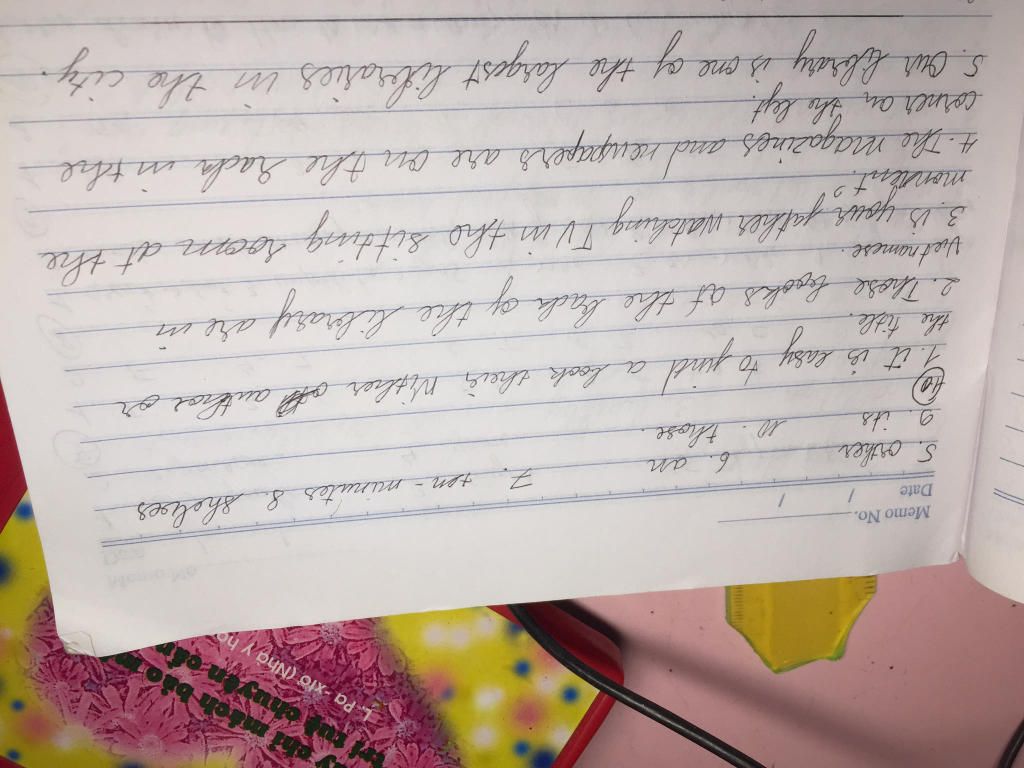 Memo No.
Date / /
5. other 6. an 7. ten-minutes 8. shelves
9. its 10. those.
10
1. it is easy to find a book their, wither author or
the title.
2. Those books at the back of the library are in
Vietnamese.
3. is your father watching TV in the sitting room at the
moment?
4. The magazines and newspapers are on the rack in the
corner on the left.
5. Our library is one of the largest libraries in the city.
Memo No.
Date
L. Pa-xtơ (Nhà y
chi mách bảo
trí tuệ chuyên cần